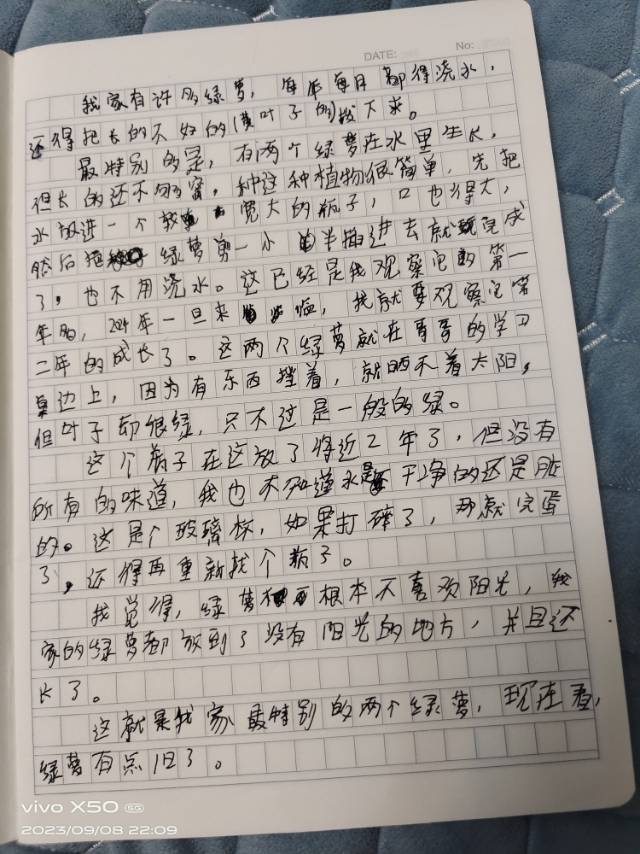 DATE:
No:
我家有许多绿萝，每年每月都得浇水，
还得把长的不好的黄叶子的拔下来。
最特别的是，有两个绿萝在水里生长，
但长的还不够密，种这种植物很简单，先把
水放进一个宽大的瓶子，口也得大，
然后把绿萝剪一小半插进去就完成
了，也不用浇水。这已经是我观察它的第一
年啦，2024年一旦来临，我就要观察它第
二年的成长了。这两个绿萝就在哥哥的学习
桌边上，因为有东西挡着，就晒不着太阳，
但叶子却很绿，只不过是一般的绿。
这个瓶子在这放了将近2年了，但没有
所有的味道，我也不知道水是干净的还是脏
的。这是个玻璃杯，如果打碎了，那就完蛋
了，还得再重新找个瓶子。
我觉得，绿萝根本不喜欢阳光，我
家的绿萝都放到了没有阳光的地方，并且还
长了。
这就是我家最特别的两个绿萝，现在看，
绿萝有点旧了。
vivo X50 5G
2023/09/08 22:09